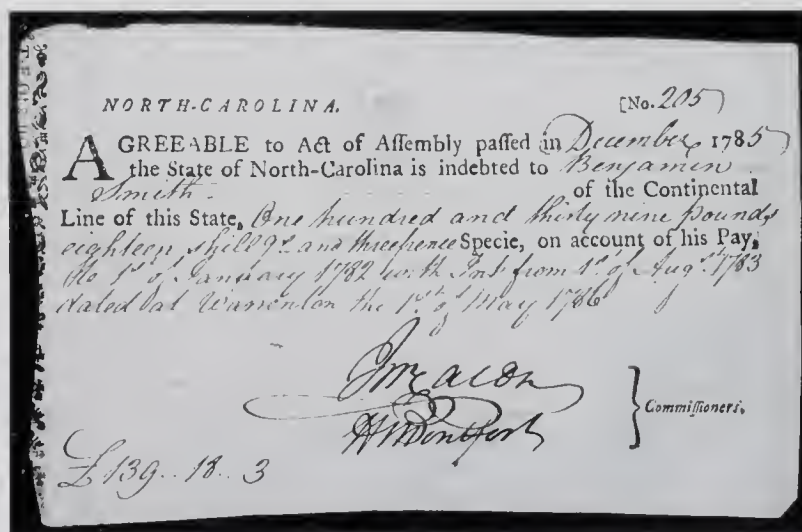 NORTH-CAROLINA. [No. 205)
AGREEABLE to Act of Aſſembly paſſed in December 1785
the State of North-Carolina is indebted to Benjamin
Smith. of the Continental
Line of this State, One hundred and thirty nine pounds
eighteen shillgs. and threepence Specie, on account of his Pay,
to 1st of January 1782 with Int from 1st of Augst 1783
dated at Warrenton the 1st of May 1786
J Macon
H Montfort
Commiſſioners.
£ 139.. 18.. 3